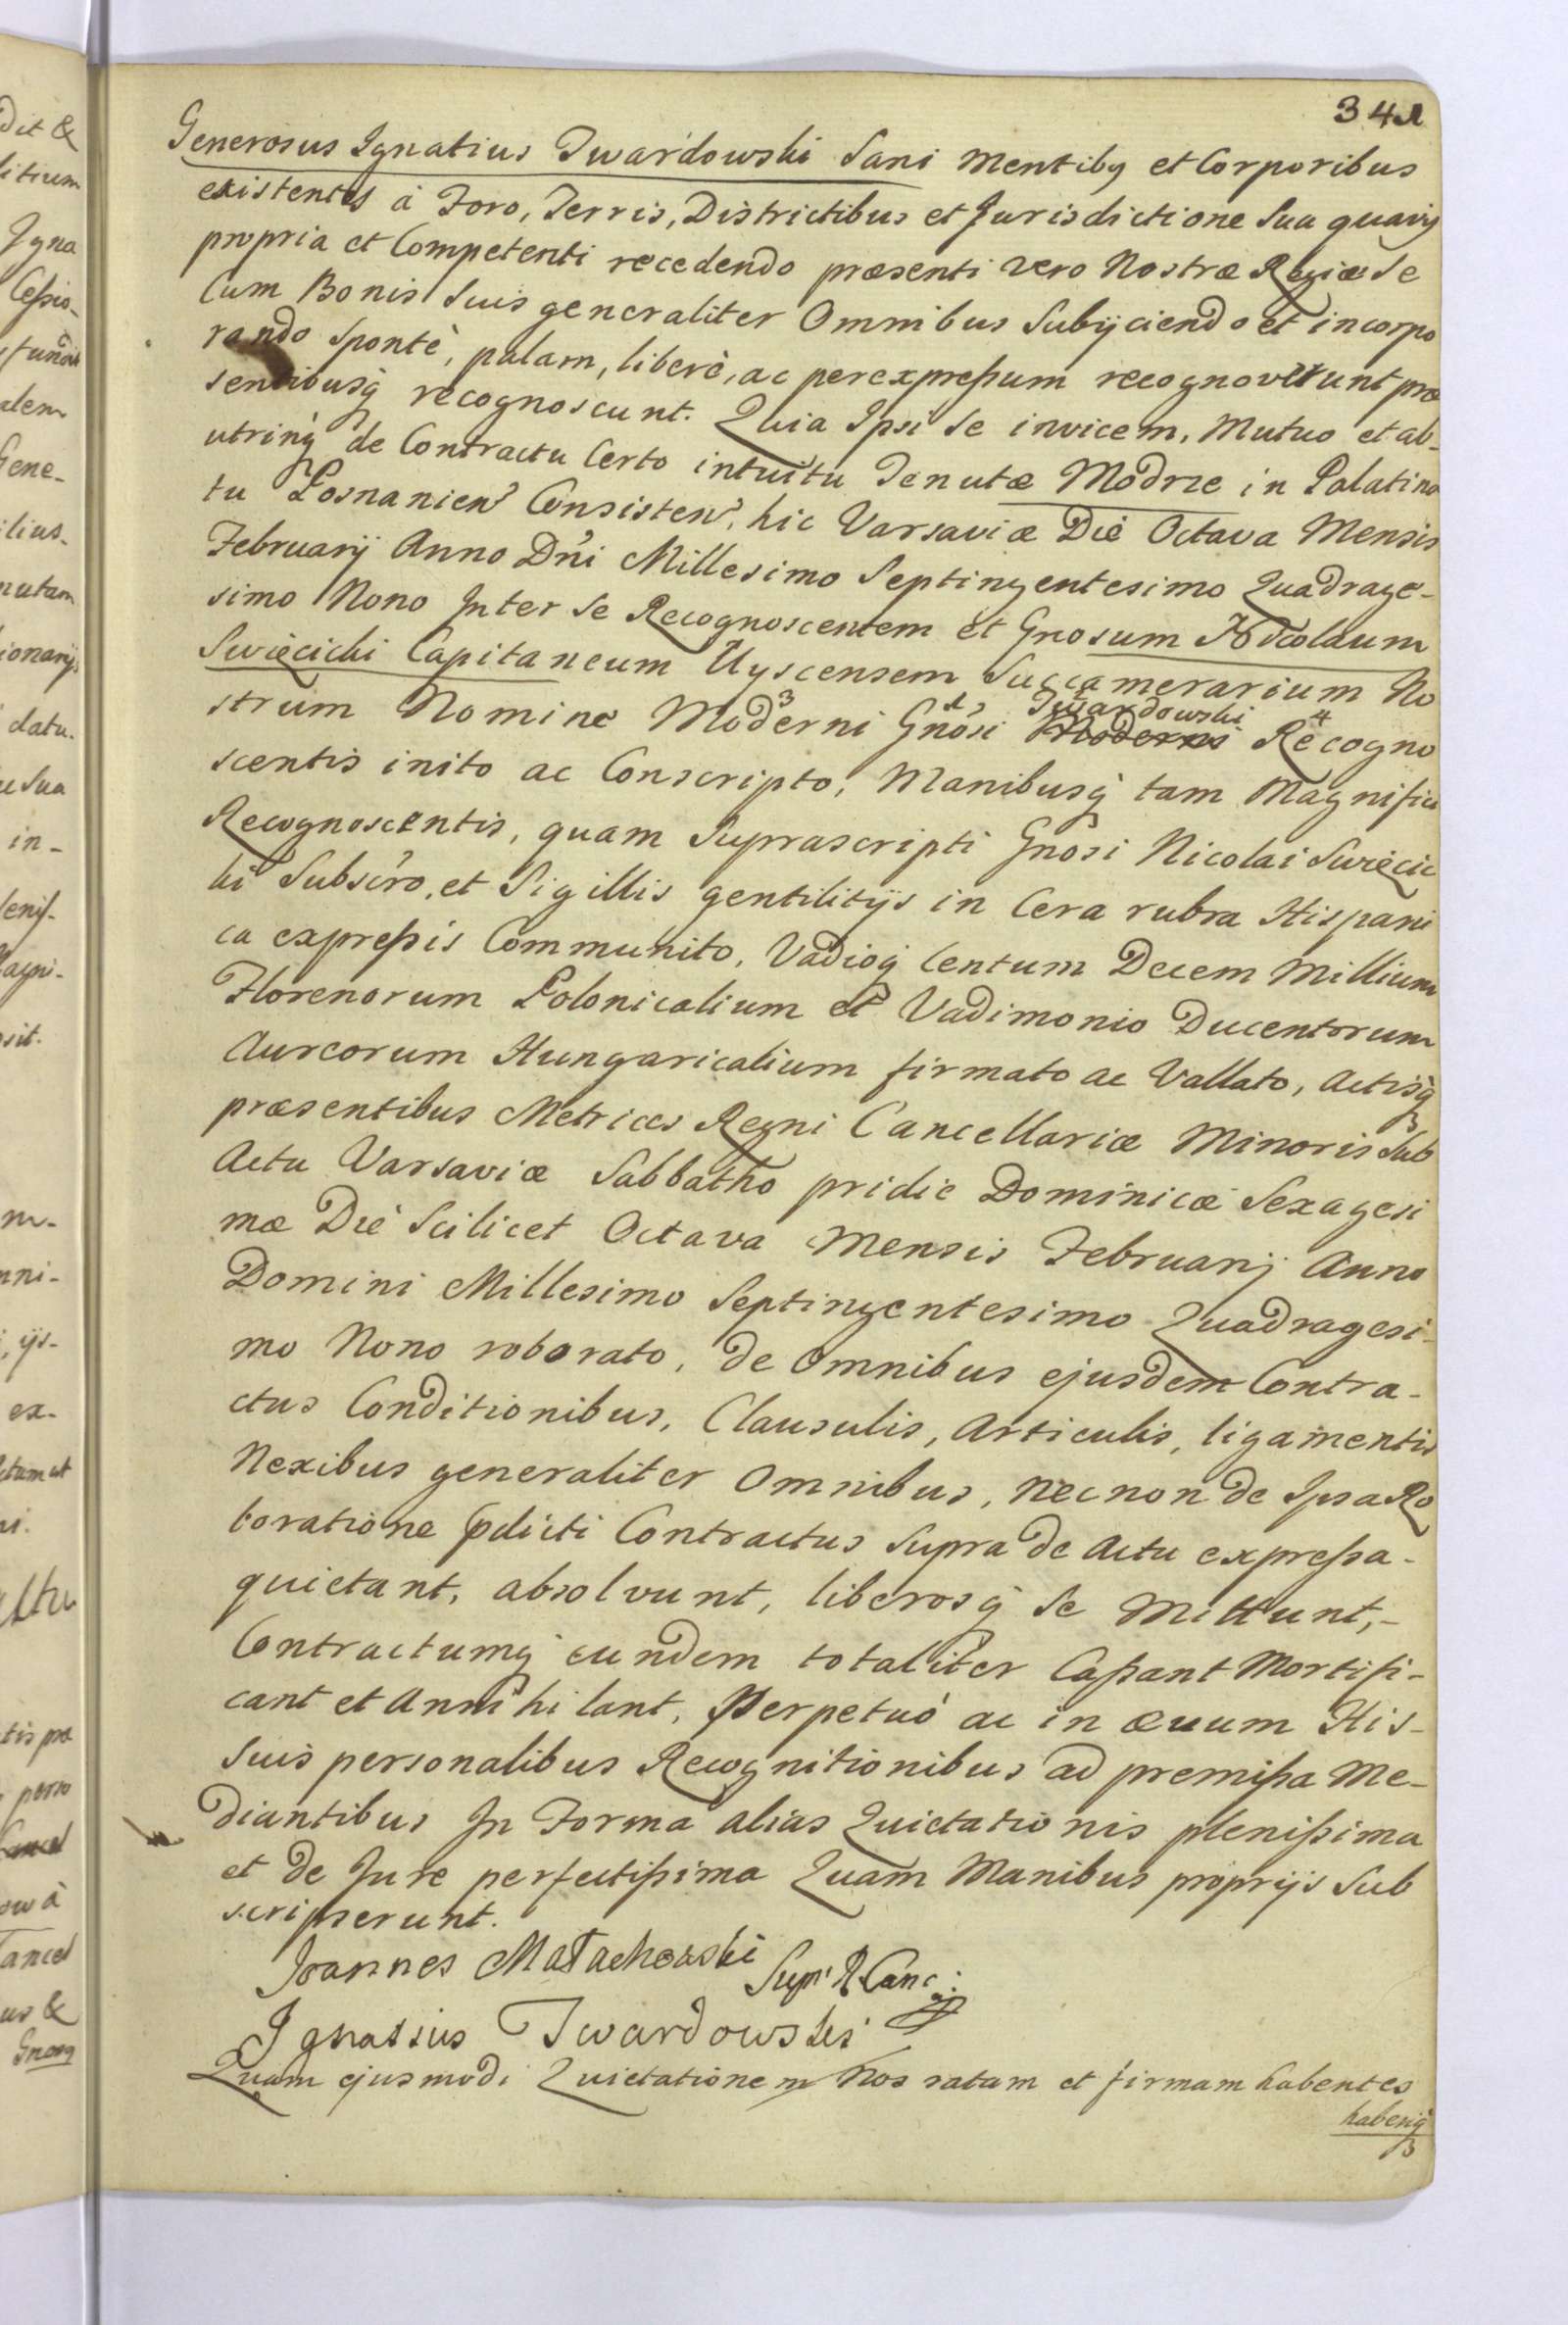 341
Generosus Ignatius Twardowski Sani mentibq et Corporibus
existentes à Foro, Terris, Districtibus et Jurisdictione Sua quavis
propria et Competenti recedendo præsenti vero Nostræ Regiæ Se
Cum Bonis Suis generaliter Omnibus Subijciendo et incorpo
rando Spontè, palam, liberè, ac per expreßum recognoverunt præ
sentibusq recognoscunt. Quia Ipsi Se invicem, Mutuo et ab-
utrinq de Contractu Certo intuitu Tenutæ Modrze in Palatina
tu Posnanien Consisten, hic Varsaviæ Die Octava Mensis
Februarij Anno Dni Millesimo Septingentesimo Quadrage-
simo Nono Inter Se Recognoscentem et Gnosum Nicolaum
Swięcicki Capitaneum Uyscensem Succamerarium No
strum Nomine Moderni Gnosi Twardowski Recogno
scentis inito ac Conscripto, Manibusq tam Magnifici
Recognoscentis, quam Suprascripti Gnosi Nicolai Swięcic
ki Subscro, et Sigillis gentilitijs in Cera rubra Hispani
ca expreßis Communito, Vadioq Centum Decem Millium
Florenorum Polonicalium et Vadimonio Ducentorum
Aureorum Hungaricalium firmato ac Vallato, Actisq
præsentibus Metrices Regni Cancellariæ Minoris Sub
Actu Varsaviæ Sabbatho pridie Dominicæ Sexagesi
mæ Die Scilicet Octava Mensis Februarij Anno
Domini Millesimo Septingentesimo Quadragesi-
mo Nono roborato, de Omnibus ejusdem Contra-
ctus Conditionibus, Clausulis, Articulis, ligamentis
Nexibus generaliter Omnibus, necnon de Ipsa Ro
boratione pdicti Contractus Supra de Actu expreßa-
quietant, absolvunt, liberosq Se Mittunt,-
Contractumq eundem totaliter Caßant Mortifi-
cant et Annihilant, Perpetuò ac in ævum His-
Suis personalibus Recognitionibus ad premißa Me-
diantibus In Forma alias Quietationis plenißima
et de Jure perfectißima Quam Manibus proprijs Sub
scripserunt.
Joannes Małachowski Supr R Canc:
Ignatius Twardowski
Quam ejusmodi Quietationem Nos ratam et firmam habentes
haberiq